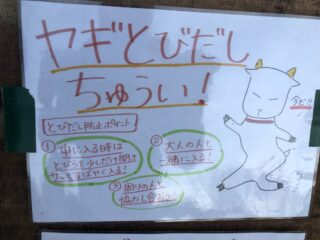 ヤギとびだし
ちゅうい!
とびだし防止ポイント
① 中に入る時は
とびらを少しだけ開き
サッとすばやく入る!
② 大人の人と
一緒に入る!
③ 周りの人と
協力し合おう!
今だ!!